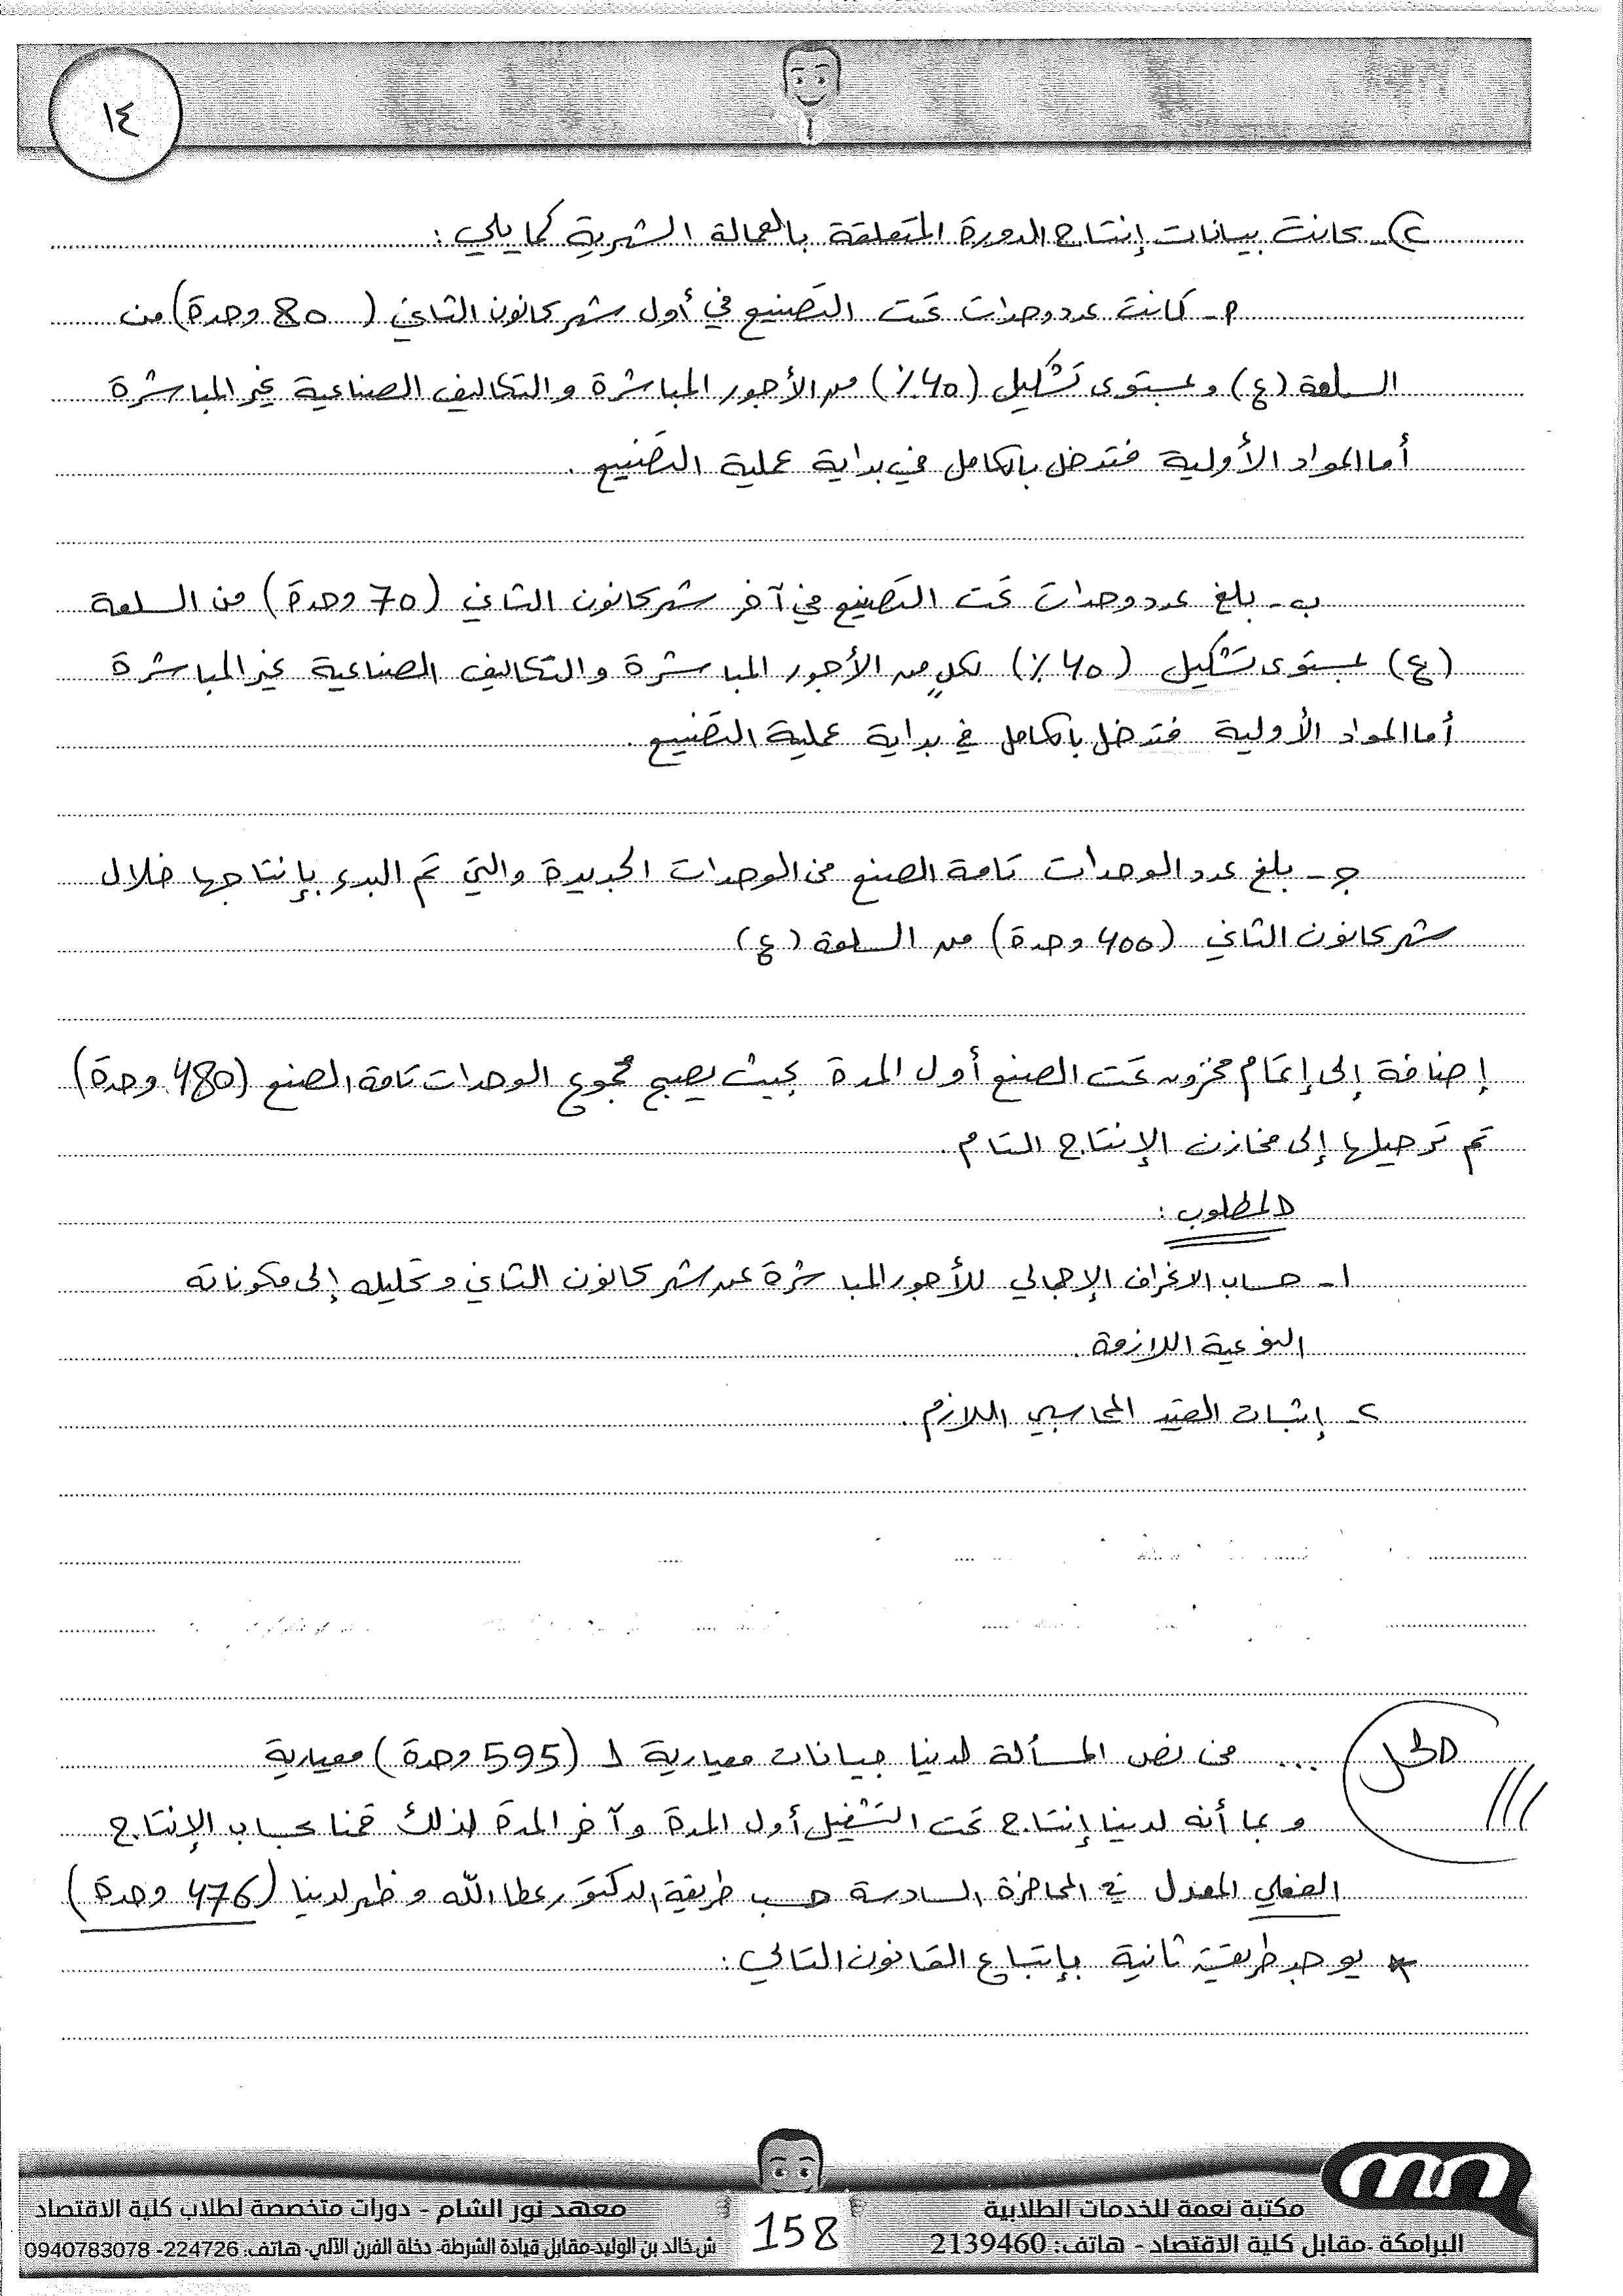 ١٤
٢- كانت بيانات إنتاج الدورة المتعلقة بالعمالة الشهرية كما يلي :
P- كانت عدد وحدات تحت التصنيع في أول شهر كانون الثاني ( 80 وحدة) من
السلعة (ع) وبمستوى تشكيل (40٪) من الأجور المباشرة والتكاليف الصناعية غير المباشرة
أما المواد الأولية فتدخل بالكامل في بداية عملية التصنيع .
ب- بلغ عدد وحدات تحت التصنيع في آخر شهر كانون الثاني (70 وحدة) من السلعة
(ع) بمستوى تشكيل (40٪) لكلٍ من الأجور المباشرة والتكاليف الصناعية غير المباشرة
أما المواد الأولية فتدخل بالكامل في بداية عملية التصنيع .
ج- بلغ عدد الوحدات تامة الصنع من الوحدات الجديدة والتي تم البدء بإنتاجها خلال
شهر كانون الثاني (400 وحدة) من السلعة (ع)
إضافة إلى إتمام مخزون تحت الصنع أول المدة بحيث يصبح مجموع الوحدات تامة الصنع (480 وحدة)
تم ترحيلها إلى مخازن الإنتاج التام .
المطلوب :
١- حساب الانحراف الإجمالي للأجور المباشرة عن شهر كانون الثاني وتحليله إلى مكوناته
النوعية اللازمة .
٢- إثبات القيد المحاسبي اللازم .
الحل ... من نص المسألة لدينا بيانات معيارية لـ (595 وحدة) معيارية
وبما أنه لدينا إنتاج تحت التشغيل أول المدة وآخر المدة لذلك قمنا بحساب الإنتاج
الفعلي المعدل في المحاضرة السادسة حسب طريقة الدكتور عطا الله وظهر لدينا (476 وحدة)
* يوجد طريقة ثانية بإتباع القانون التالي :
مكتبة نعمة للخدمات الطلابية
البرامكة -مقابل كلية الاقتصاد - هاتف: 2139460
158
معهد نور الشام - دورات متخصصة لطلاب كلية الاقتصاد
ش.خالد بن الوليد-مقابل قيادة الشرطة- دخلة الفرن الآلي- هاتف: 224726- 0940783078